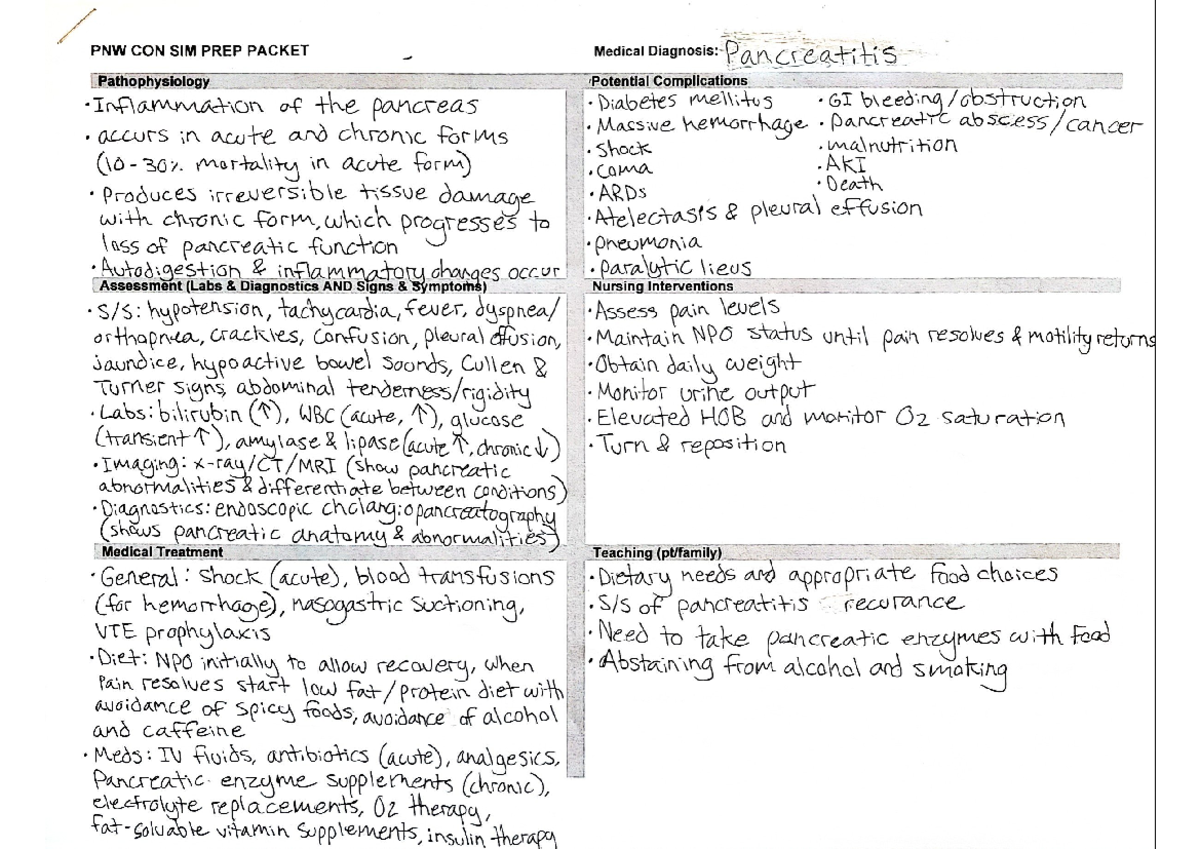 PNW CON SIM PREP PACKET
Medical Diagnosis: Pancreatitis
Pathophysiology
·Inflammation of the pancreas
·occurs in acute and chronic forms
(10-30% mortality in acute form)
·Produces irreversible tissue damage
with chronic form, which progresses to
loss of pancreatic function
·Autodigestion & inflammatory changes occur
Potential Complications
·Diabetes mellitus
·Massive hemorrhage
·Shock
·Coma
·ARDs
·Atelectasis & pleural effusion
·pneumonia
·Paralytic lieus
·GI bleeding/obstruction
·Pancreatic abscess/cancer
·malnutrition
·AKI
·Death
Assessment (Labs & Diagnostics AND Signs & Symptoms)
·S/S: hypotension, tachycardia, fever, dyspnea/
orthopnea, crackles, confusion, pleural effusion,
jaundice, hypoactive bowel sounds, Cullen &
Turner signs, abdominal tenderness/rigidity
·Labs: bilirubin (↑), WBC (acute, ↑), glucose
(transient ↑), amylase & lipase (acute ↑, chronic ↓)
·Imaging: x-ray/CT/MRI (show pancreatic
abnormalities & differentiate between conditions)
·Diagnostics: endoscopic cholangiopancreatography
(shows pancreatic anatomy & abnormalities)
Nursing Interventions
·Assess pain levels
·Maintain NPO status until pain resolves & motility returns
·Obtain daily weight
·Monitor urine output
·Elevated HOB and monitor O2 saturation
·Turn & reposition
Medical Treatment
·General: shock (acute), blood transfusions
(for hemorrhage), nasogastric suctioning,
VTE prophylaxis
·Diet: NPO initially to allow recovery, when
Pain resolves start low fat/protein diet with
avoidance of spicy foods, avoidance of alcohol
and caffeine
·Meds: IV fluids, antibiotics (acute), analgesics,
Pancreatic enzyme supplements (chronic),
electrolyte replacements, O2 therapy,
fat-soluable vitamin supplements, insulin therapy
Teaching (pt/family)
·Dietary needs and appropriate food choices
·S/S of pancreatitis recurance
·Need to take pancreatic enzymes with food
·Abstaining from alcohol and smoking